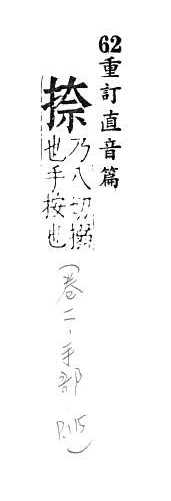 62重訂直音篇
捺乃八切搦
也手按也
(卷二·手部
P.115)